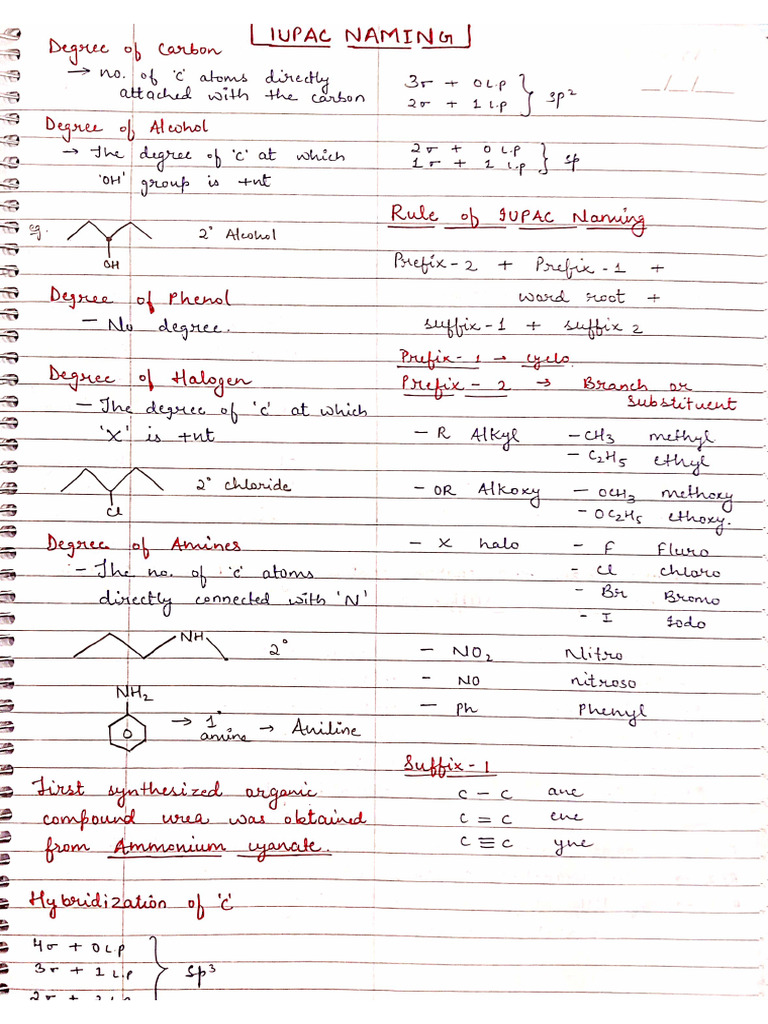 IUPAC NAMING
Degree of Carbon
→ no. of 'C' atoms directly
attached with the carbon
Degree of Alcohol
→ The degree of 'C' at which
'OH' group is +nt
eg.
2° Alcohol
OH
Degree of Phenol
– No degree.
Degree of Halogen
– The degree of 'C' at which
'X' is +nt
2° chloride
Cl
Degree of Amines
– The no. of 'C' atoms
directly connected with 'N'
NH
2°
NH2
→ 1° amine → Aniline
First synthesized organic
compound urea was obtained
from Ammonium cyanate.
Hybridization of 'C'
4σ + 0 L.P
3σ + 1 L.P } sp3
3σ + 0 L.P
2σ + 1 L.P } sp2
2σ + 0 L.P
1σ + 1 L.P } sp
Rule of IUPAC Naming
Prefix-2 + Prefix-1 +
word root +
suffix-1 + suffix 2
Prefix-1 → cyclo.
Prefix-2 → Branch or
substituent
– R Alkyl – CH3 methyl
– C2H5 ethyl
– OR Alkoxy – OCH3 methoxy
– OC2H5 ethoxy.
– X halo – F Fluro
– Cl chloro
– Br Bromo
– I Iodo
– NO2 Nitro
– NO nitroso
– Ph Phenyl
Suffix-1
C – C ane
C = C ene
C ≡ C yne